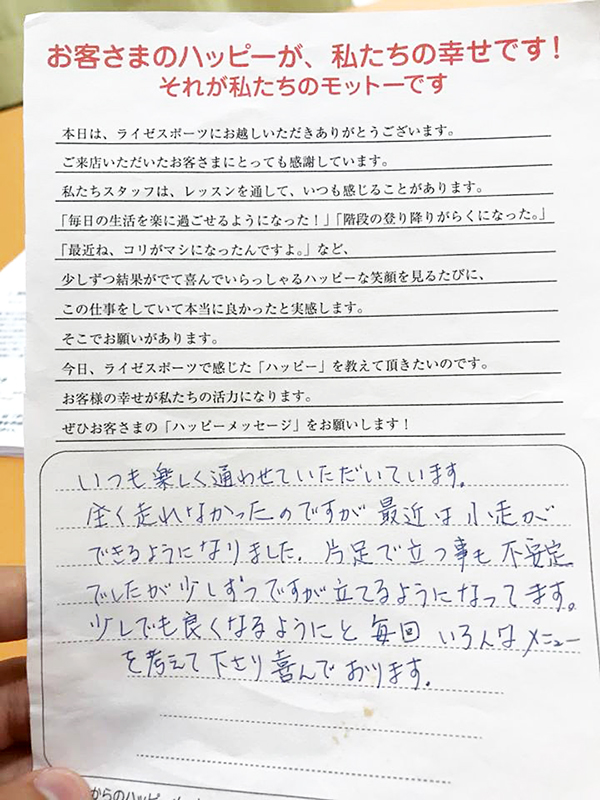 お客さまのハッピーが、私たちの幸せです！
それが私たちのモットーです
本日は、ライゼスポーツにお越しいただきありがとうございます。
ご来店いただいたお客さまにとっても感謝しています。
私たちスタッフは、レッスンを通して、いつも感じることがあります。
「毎日の生活を楽に過ごせるようになった！」「階段の登り降りがらくになった。」
「最近ね、コリがマシになったんですよ。」など、
少しずつ結果がでて喜んでいらっしゃるハッピーな笑顔を見るたびに、
この仕事をしていて本当に良かったと実感します。
そこでお願いがあります。
今日、ライゼスポーツで感じた「ハッピー」を教えて頂きたいのです。
お客様の幸せが私たちの活力になります。
ぜひお客さまの「ハッピーメッセージ」をお願いします！
いつも楽しく通わせていただいています。
全く走れなかったのですが 最近は小走が
できるようになりました。片足で立つ事も不安定
でしたが少しずつですが立てるようになってます。
少しでも良くなるようにと毎回いろんなメニュー
を考えて下さり喜んでおります。
からのハッピー